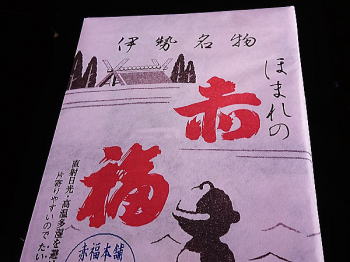 伊勢名物
ほまれの
赤
福
直射日光・高温多湿を避
片寄りやすいのでたい
赤福本舗